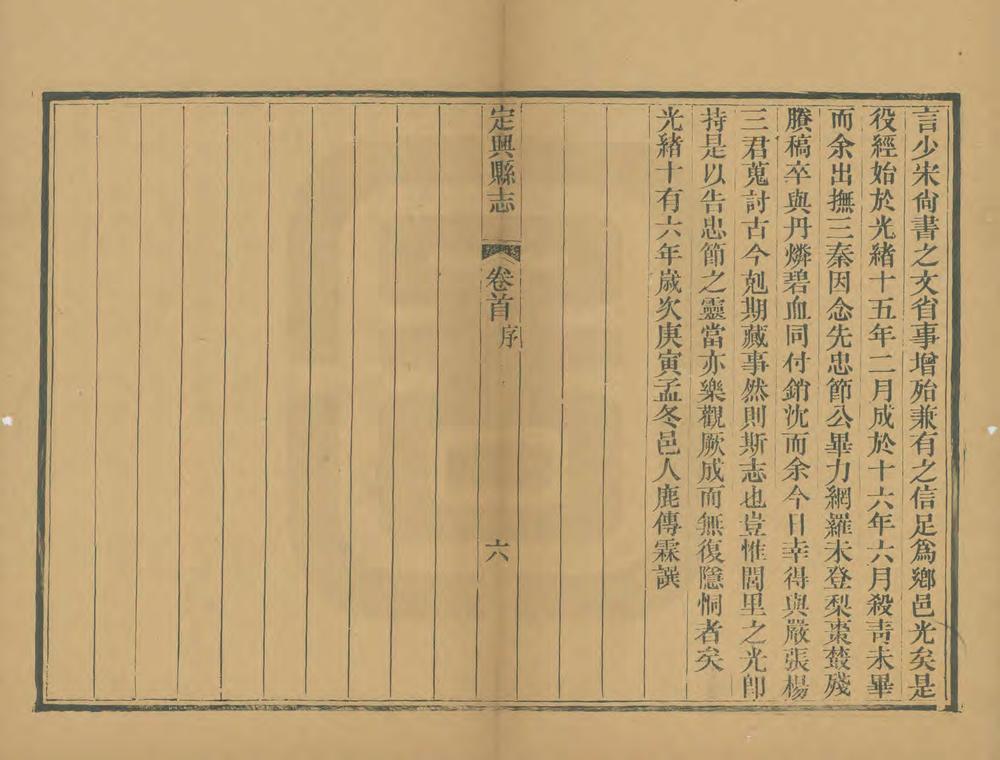 言少宋尙書之文省事增殆兼有之信足爲鄕邑光矣是
役經始於光緒十五年二月成於十六年六月殺靑未畢
而余出撫三秦因念先忠節公畢力網羅未登梨棗叢殘
賸稿卒與丹燐碧血同付銷沈而余今日幸得與嚴張楊
三君蒐討古今剋期蕆事然則斯志也豈惟閭里之光卽
持是以告忠節之靈當亦樂觀厥成而無復隱恫者矣
光緒十有六年歲次庚寅孟冬邑人鹿傳霖譔
定興縣志 卷首 序 六